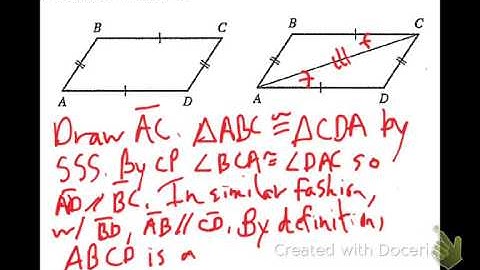 B C B C
A D A D
Draw A̅C̅. △ABC ≅ △CDA by
SSS. By CP ∠BCA ≅ ∠DAC so
A̅D̅ // B̅C̅. In similar fashion,
w/ B̅D̅, A̅B̅ // C̅D̅. By definition,
ABCD is a
Created with Doceri